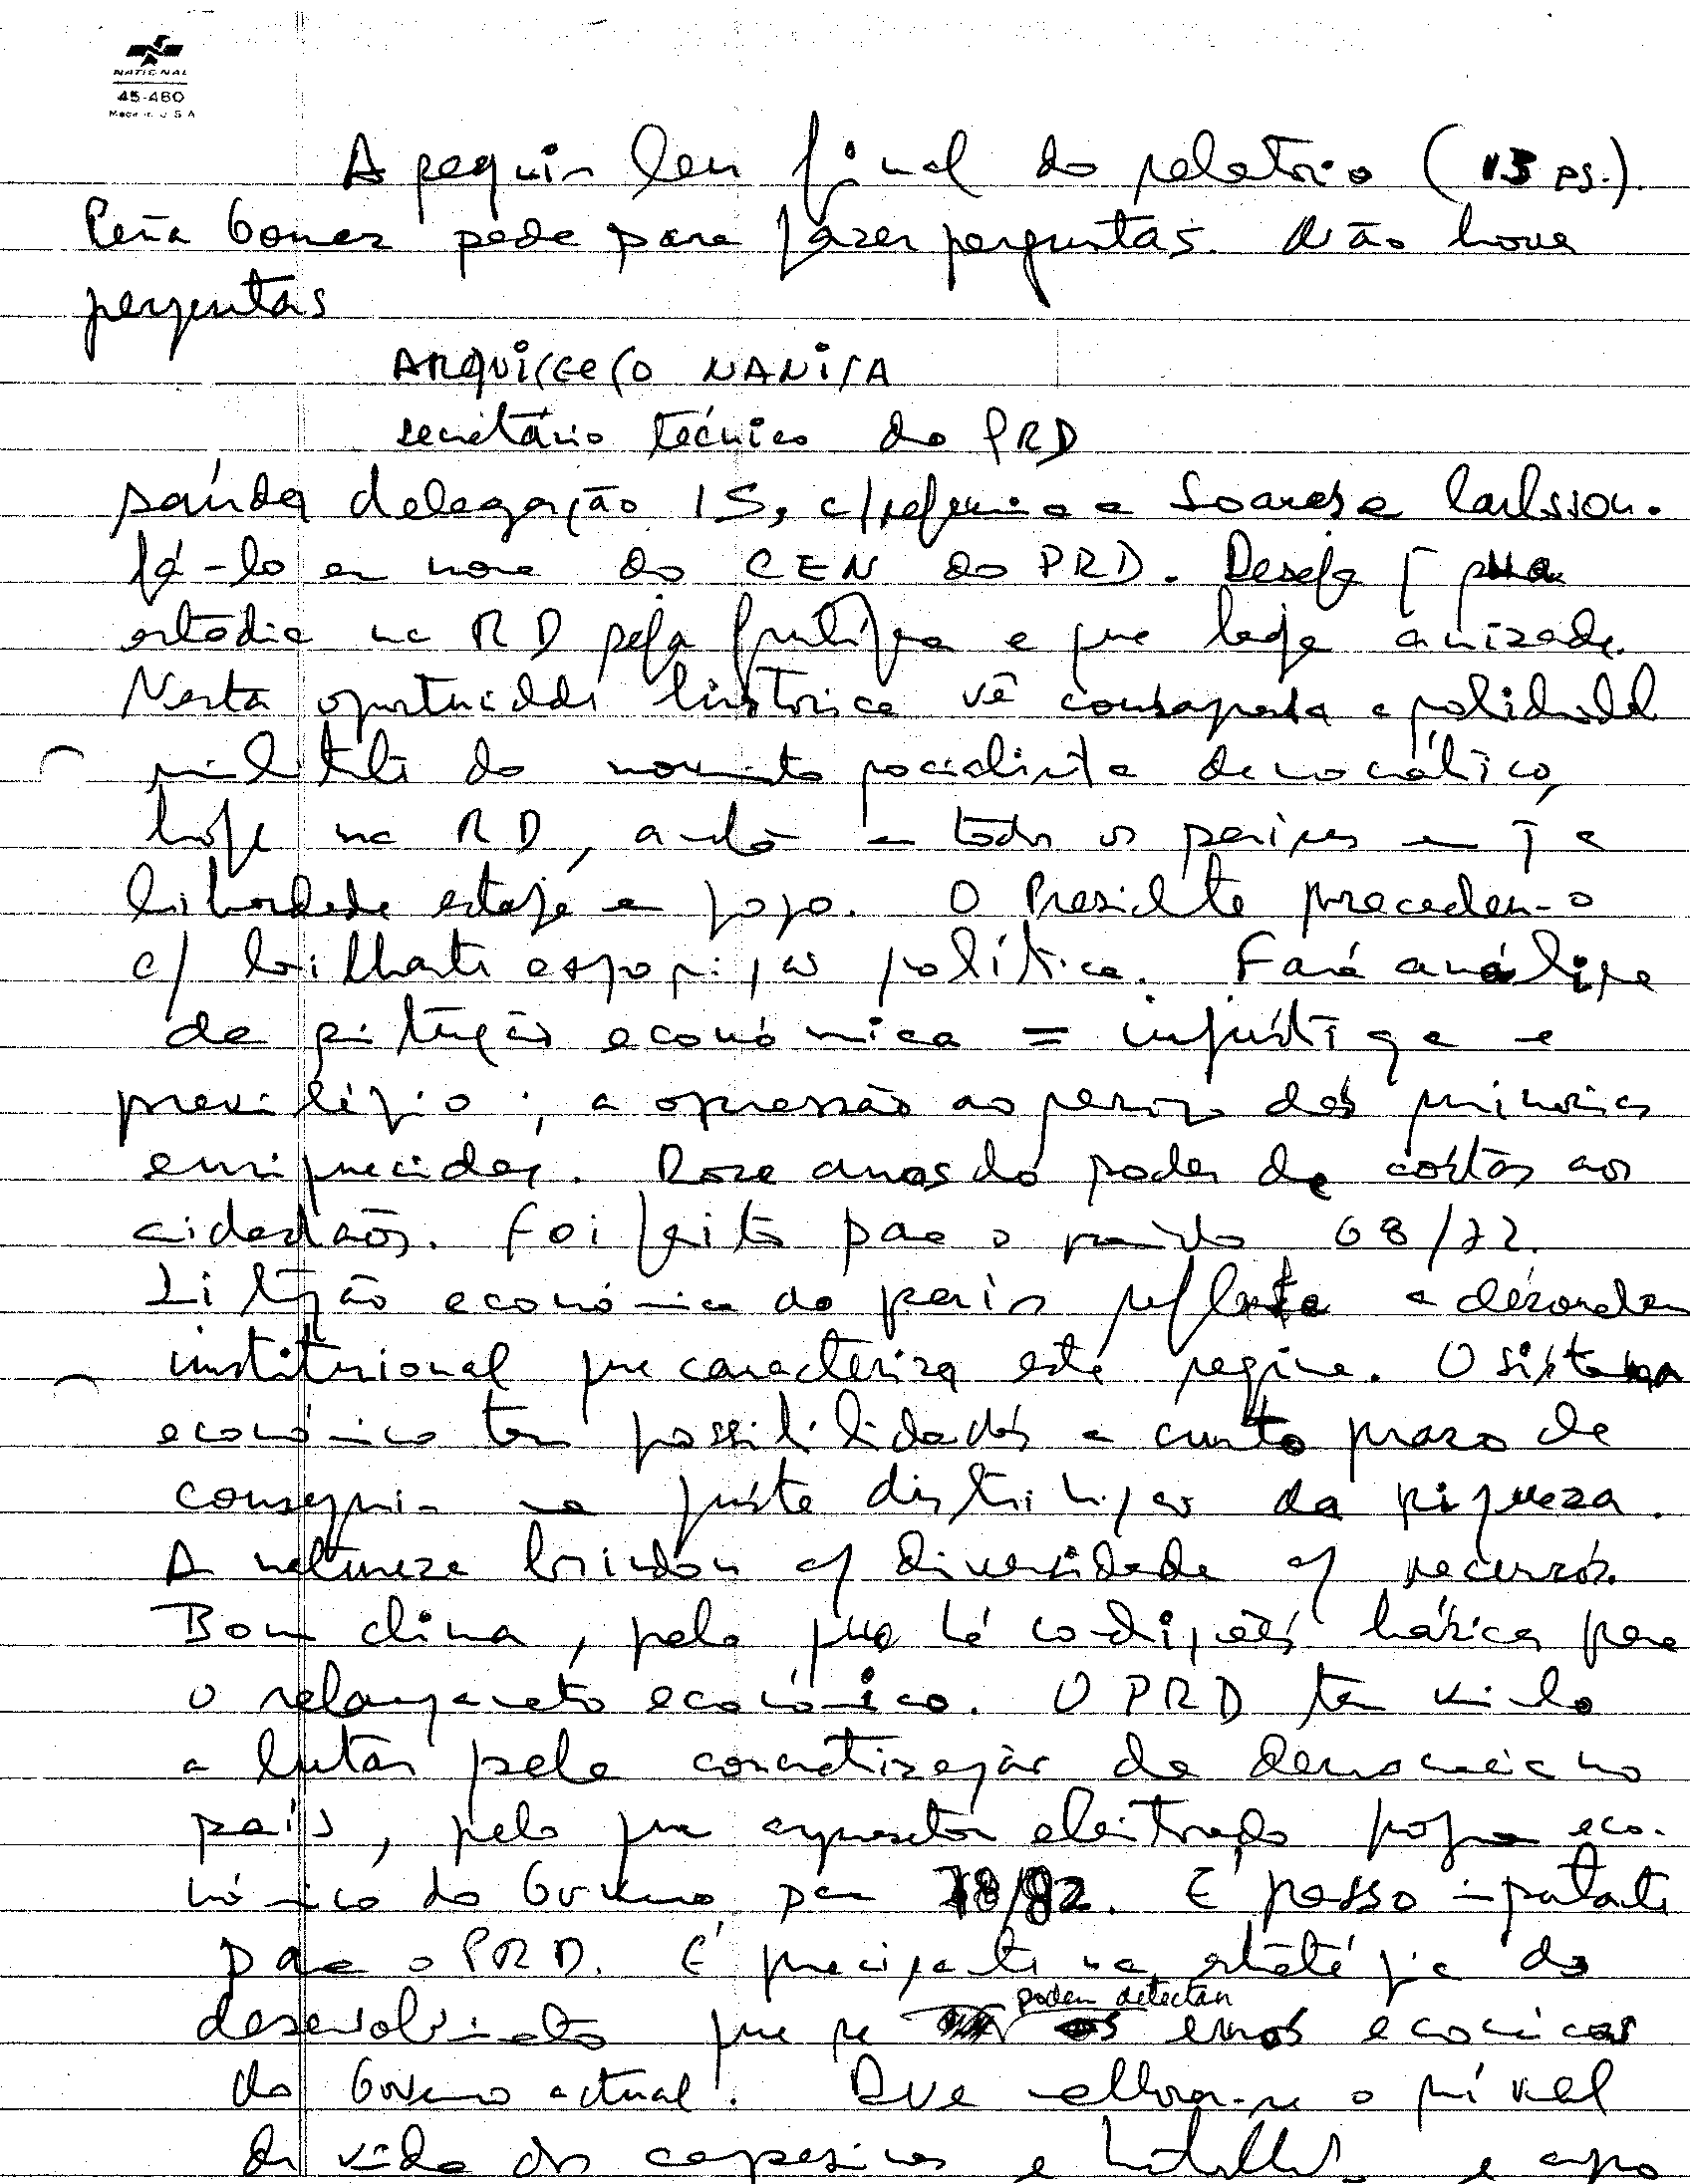 NATIONAL
45-480
Made in U S A
A seguir leu final do relatório (13 ps.).
Peña Gomez pede para fazer perguntas. Não houve
perguntas
secretário técnico do PRD
saúda delegação IS, c/ referência a Soares e Carlsson.
Fá-lo em nome do CEN do PRD. Deseja q sua
estadia na RD seja frutífera e que haja amizade.
Nesta oportunidade histórica vê consagrada a solidariedade
militante do movimento socialista democrático,
hoje na RD, amanhã em todos os países em q a
liberdade esteja em jogo. O Presidente precedeu-o
c/ brilhante exposição política. Fará análise
da situação económica = injustiça e
previlégio; a opressão ao serviço das minorias
enriquecidas. Doze anos do poder de costas aos
cidadãos. Foi feito para o período 68/72.
Situação económica do país reflete a desordem
institucional que caracteriza este regime. O sistema
económico tem possibilidades a curto prazo de
conseguir uma justa distribuição da riqueza.
A natureza brindou c/ diversidade c/ recursos.
Bom clima, pelo que há condições básicas para
o relançamento económico. O PRD tem vindo
a lutar pela concretização da democracia no
país, pelo que apresentou eleitorado programa eco-
nómico do Governo para 78/82. É passo importante
para o PRD. É precipante na estratégia do
desenvolvimento que se podem detectar os erros económicos
do Governo actual. Que melhorar-se o nível
de vida dos campesinos e